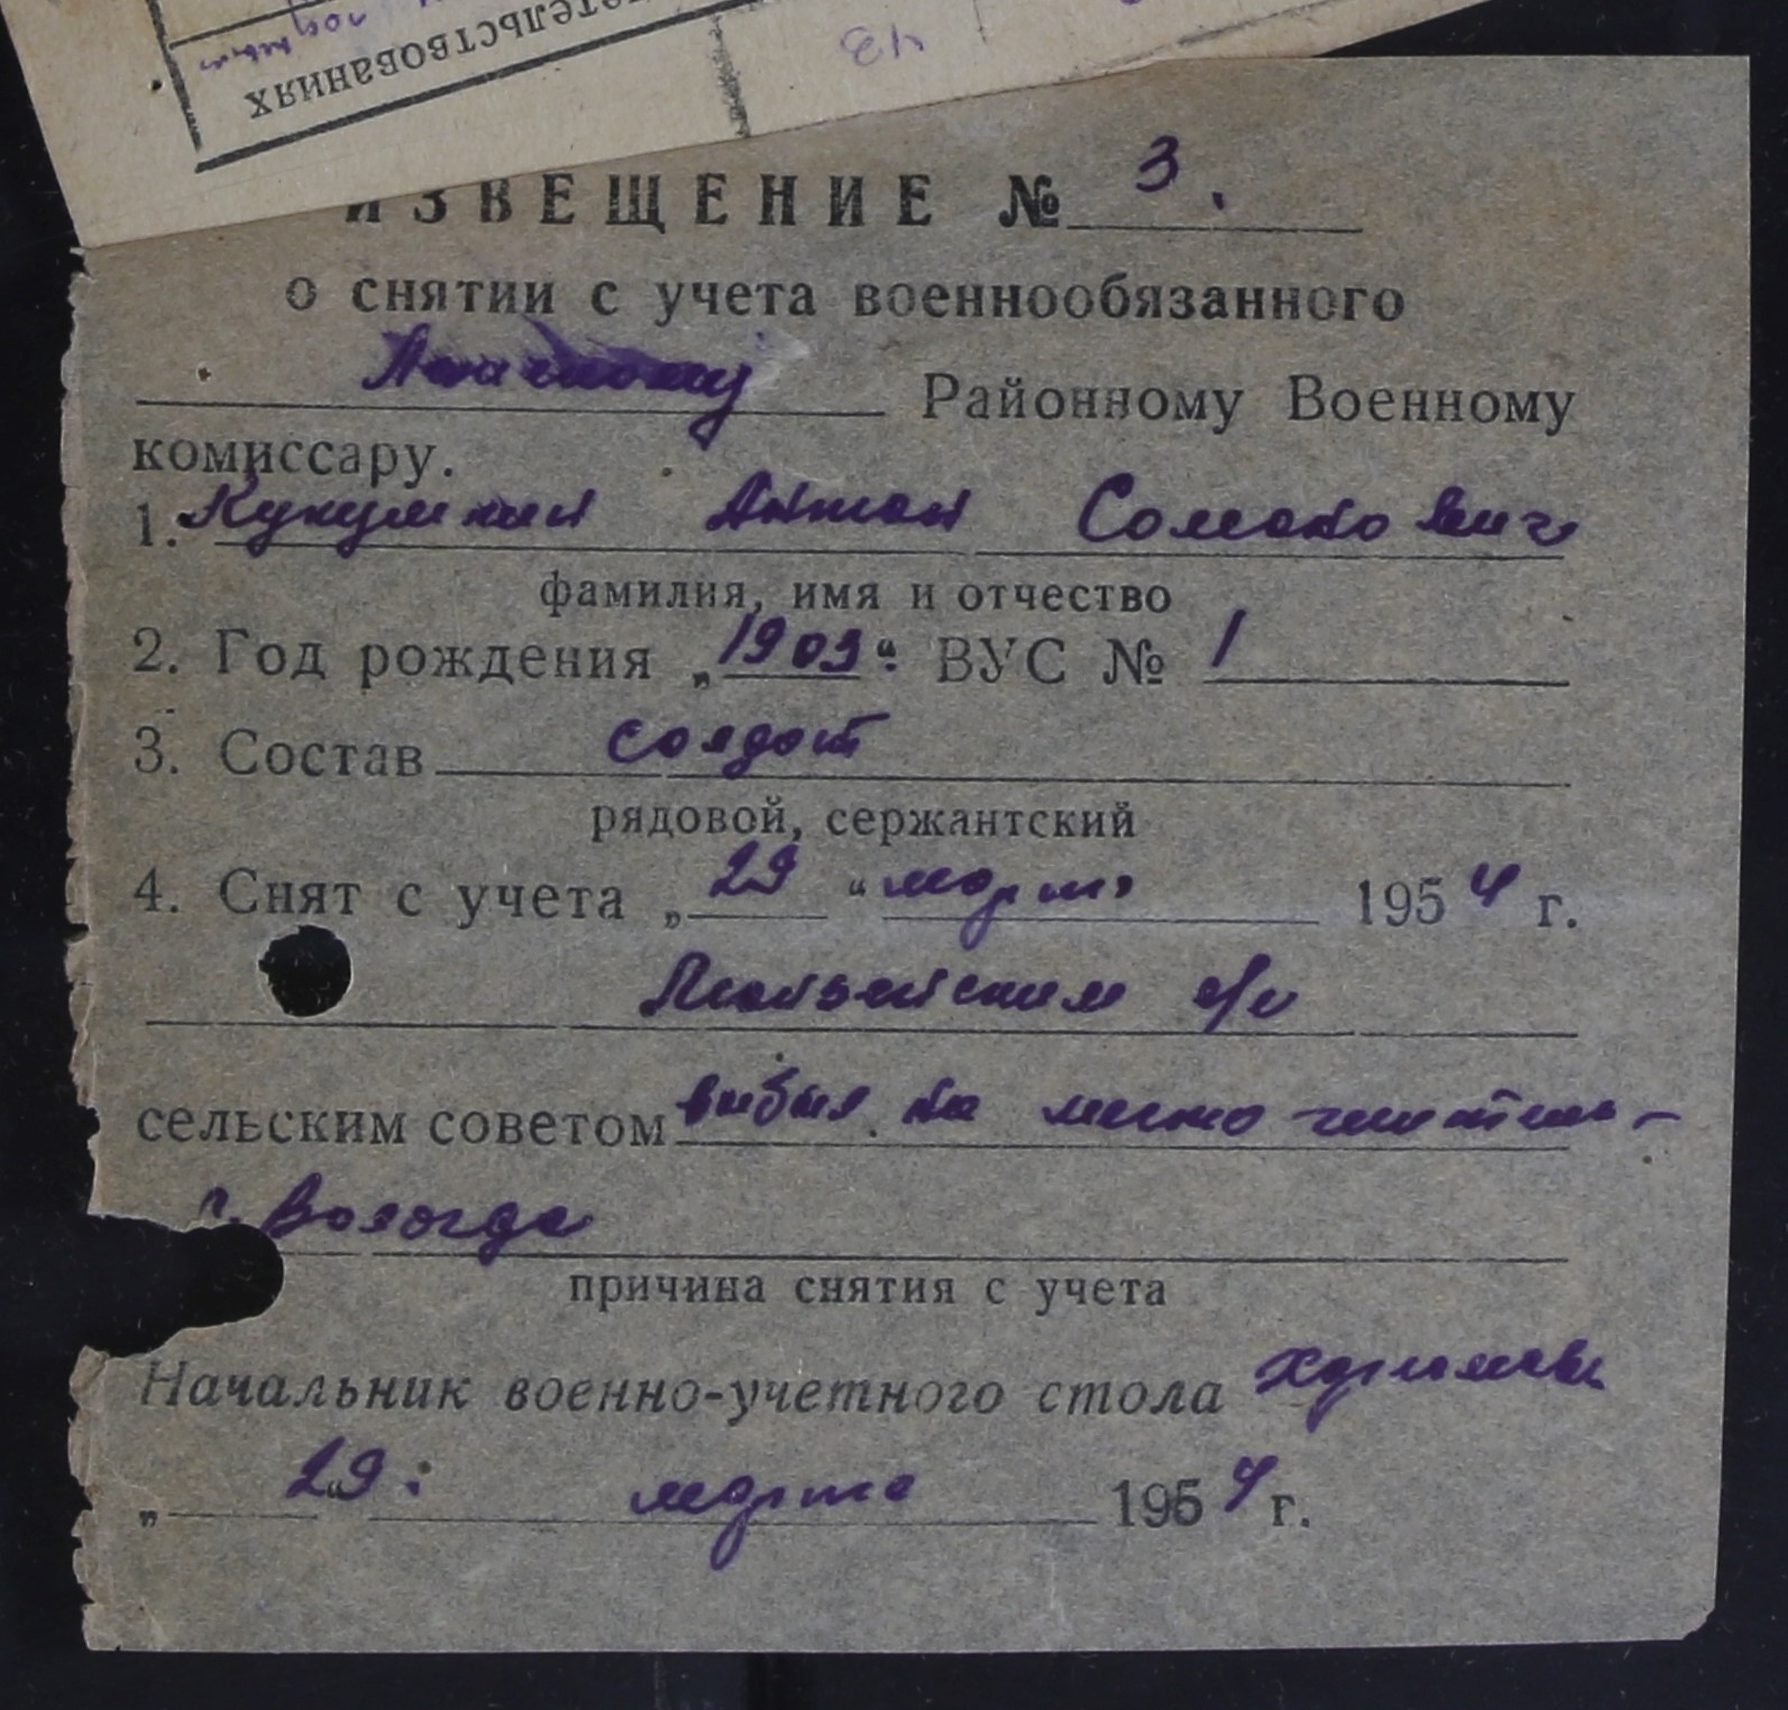 ельствованиях
43
ИЗВЕЩЕНИЕ № 3.
о снятии с учета военнообязанного
Районному Военному
комиссару.
1. Антон
фамилия, имя и отчество
2. Год рождения „1903“. ВУС № 1
3. Состав солдат
рядовой, сержантский
4. Снят с учета „29“ марта 1954 г.
с/с
сельским советом выбыл на место
г. Вологда
причина снятия с учета
Начальник военно-учетного стола
„29“ марта 1954 г.